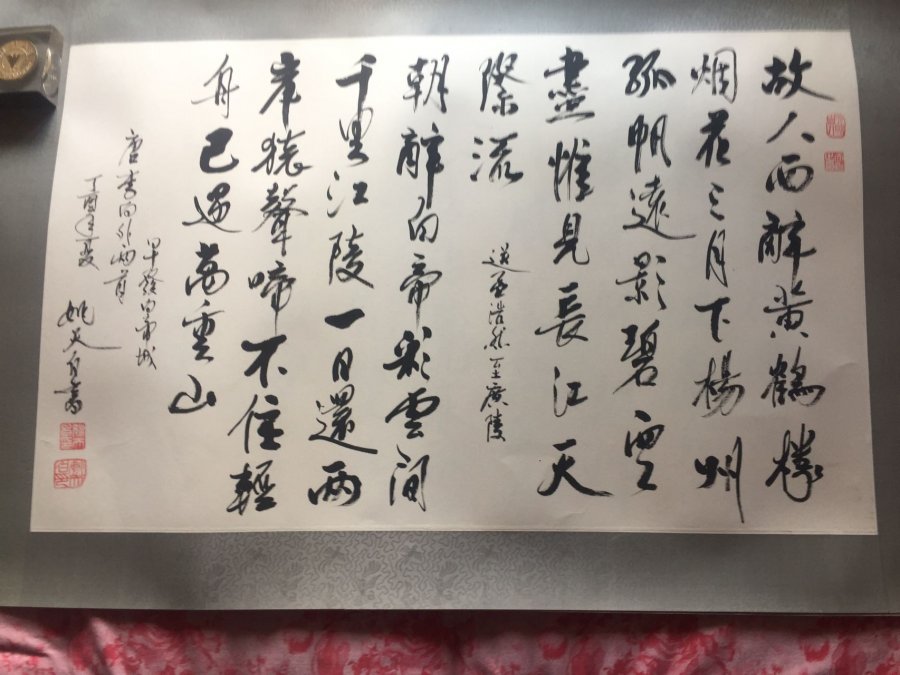 故人西辤黄鶴楼
烟花三月下楊州
孤帆遠影碧空
盡惟見長江天
際流
送孟浩然至廣陵
朝辤白帝彩雲間
千里江陵一日還两
岸猿聲啼不住輕
舟已过萬重山
早發白帝城
唐李白詩两首
丁酉年夏